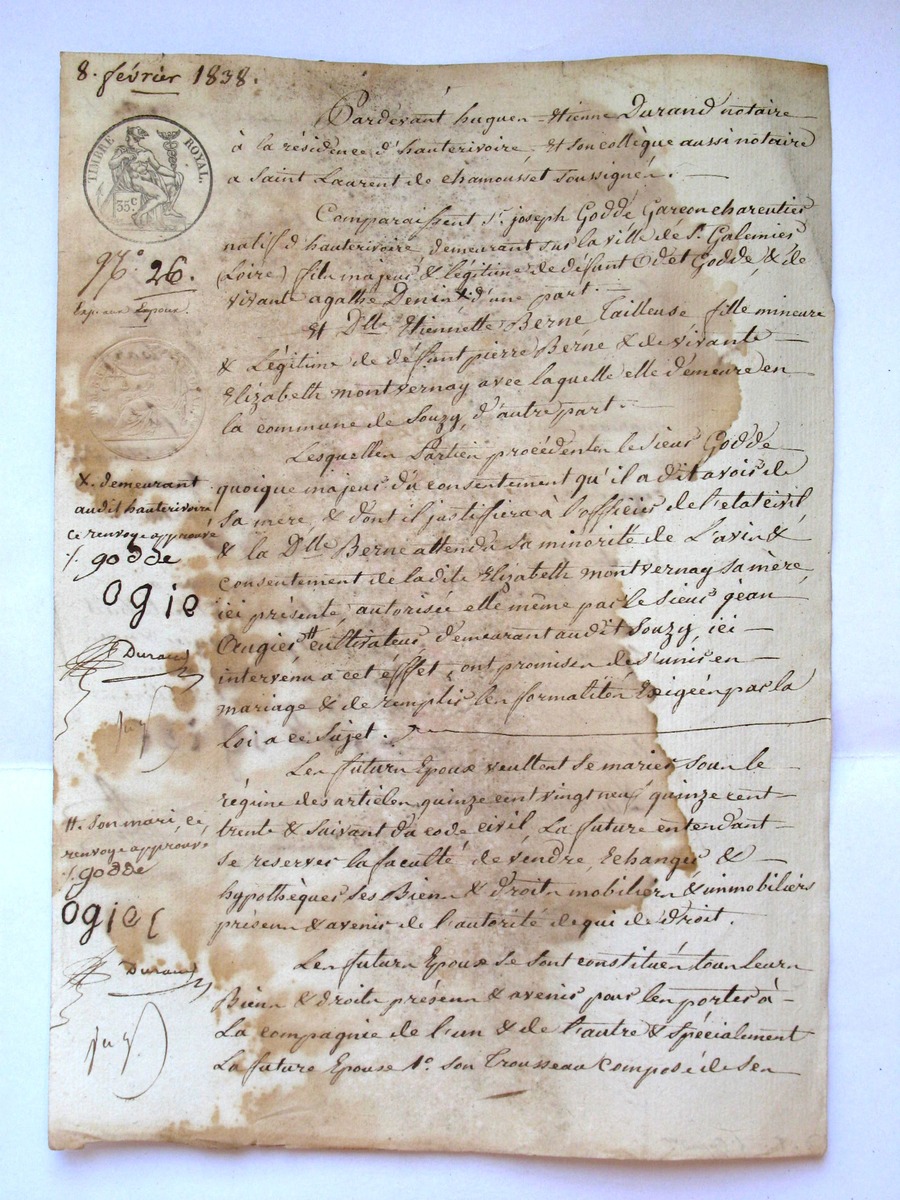 8. février 1838.
Pardevant hugues Etienne Durand notaire
à la résidence d'hauterivoire, et son collègue aussi notaire
a Saint Laurent de chamousset soussignés.
TIMBRE ROYAL.
35 c
Comparaissent Sr. joseph Goddé Garcon charentier
natif d'hauterivoire, demeurant sur la ville de St. Galemier
(Loire) fils majeur & légitime de défunt Odet Goddé, & de
vivante agathe Denis x d'une part.
No. 26.
Exp. aux Epoux.
Et Dlle. Etiennette Berne Tailleuse fille mineure
& Légitime de défunt pierre Berne & de vivante
Elizabeth montvernay avec laquelle elle demeure en
la commune de Souzy, d'autre part.
Lesquelles Parties procédentes le sieur Goddé
quoique majeur du consentement qu'il a dit avoir de
sa mère, & dont il justifiera à l'officier de l'etat civil
& la Dlle Berne attendu sa minorité de L'avis &
consentement de ladite Elizabeth montvernay sa mère,
ici présente, autorisée elle même par le sieur jean
Ougier # cultivateur, demeurant audit Souzy, ici
intervenu a cet effet, ont promis de s'unir en
mariage & de remplir les formalités Exigées par la
Loi a ce sujet.
x. demeurant
audit hauterivoire
ce renvoye approuvé
godde
Ogie
Durand
Les futurs Epoux veullent se marier sous le
régime des articles quinze cent vingt neuf quinze cent
trente & suivant du code civil, La future entendant
se reserver la faculté de vendre Echanger &
hypothèquer ses Biens & droits mobiliers & immobiliers
présens & avenir de l'autorité de qui de droit.
#. son mari, ce
renvoye approuvé
godde
Ogier
Durand
Les futurs Epoux se sont constitués tous leurs
Biens & droits présens & avenir pour les porter à
La compagnie de l'un & de l'autre & spécialement
La future Epouse 1o. son Trousseau composé de ses